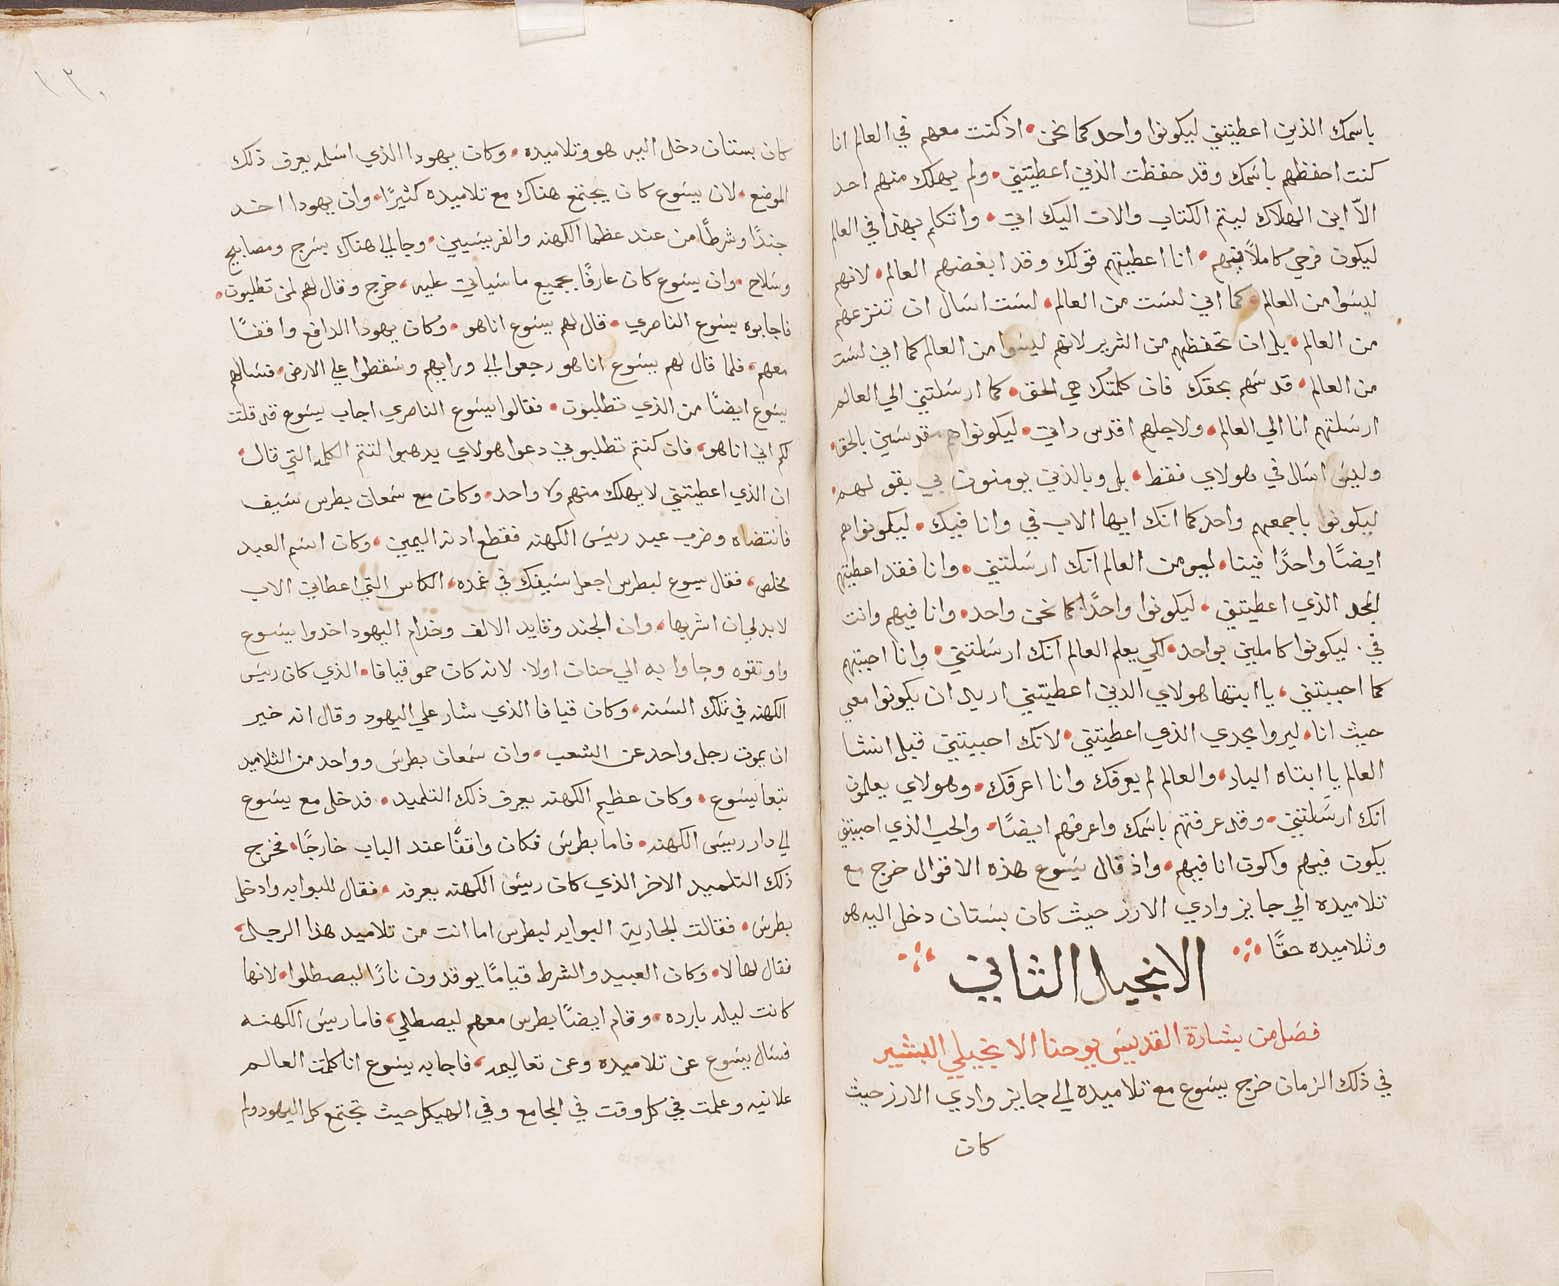 باسمك الذين اعطيتني ليكونوا واحد كما نحن • اذ كنت معهم في العالم انا
كنت احفظهم باسمك وقد حفظت الذين اعطيتني • ولم يهلك منهم احد
الاّ ابن الهلاك ليتم الكتاب والان اليك اتي • واتكلم بهذا في العالم
ليكون فرحي كاملاً فيهم • انا اعطيتهم قولك وقد ابغضهم العالم • لانهم
ليسوا من العالم • كما اني لست من العالم • لست اسال ان تنزعهم
من العالم • بل ان تحفظهم من الشرير لانهم ليسوا من العالم كما اني لست
من العالم • قدسهم بحقك فان كلمتك هي الحق • كما ارسلتني الي العالم
ارسلتهم انا الي العالم • ولاجلهم اقدس داتي • ليكونوا هم مقدسين بالحق •
وليس اسال في هولاي فقط • بل وبالذين يومنون بي بقولهم •
ليكونوا باجمعهم واحد كما انك ايها الاب في وانا فيك • ليكونوا هم
ايضًا واحدًا فينا • ليومن العالم انك ارسلتني • وانا فقد اعطيتهم
المجد الذي اعطيتني • ليكونوا واحدًا كما نحن واحد • وانا فيهم وانت
في • ليكونوا كاملين بواحد • لكي يعلم العالم انك ارسلتني • وانا احببتهم
كما احببتني • يا ابتها هولاي الدين اعطيتني اريد ان يكونوا معي
حيث انا • ليروا مجدي الذي اعطيتني • لانك احببتني قبل انشا
العالم يا ابتاه البار • والعالم لم يعرفك وانا اعرفك • وهولاي يعلمون
انك ارسلتني • وقد عرفتهم باسمك واعرفهم ايضًا • والحب الذي احببتني
يكون فيهم واكون انا فيهم • واذ قال يسوع هذه الاقوال خرج مع
تلاميده الي جايز وادي الارز حيث كان بستان دخل اليه هو
وتلاميده حقًا
الانجيل الثاني
فصل من بشارة القديس يوحنا الانجيلي البشير
في ذلك الزمان خرج يسوع مع تلاميده الي جايز وادي الارز حيث
كان
١٢٠
كان بستان دخل اليه هو وتلاميده • وكان يهودا الذي اسلمه يعرف ذلك
الموضع • لان يسوع كان يجتمع هناك مع تلاميده كثيرًا • وان يهودا اخد
جندًا وشرطًا من عند عظما الكهنه والفريسيين • وجا الي هناك بسرج ومصابيح
وسلاح • وان يسوع كان عارفًا بجميع ما سياتي عليه • خرج وقال لهم لمن تطلبون •
فاجابوه يسوع الناصري • قال لهم يسوع اناهو • وكان يهودا الدافع واقفًا
معهم • فلما قال لهم يسوع اناهو رجعوا الي ورايهم وسقطوا علي الارض • فسالهم
يسوع ايضًا من الذي تطلبون • فقالوا يسوع الناصري اجاب يسوع قد قلت
لكم اني اناهو • فان كنتم تطلبوني دعوا هولاي يدهبوا لتتم الكلمه التي قال •
ان الذي اعطيتني لا يهلك منهم ولا واحد • وكان مع سمعان بطرس سيف
فانتضاه وضرب عبد رييس الكهنه فقطع ادنه اليمين • وكان اسم العبد
مخلص • فقال يسوع لبطرس اجعل سيفك في غمده • الكاس التي اعطاني الاب
لا بد لي ان اشربها • وان الجند وقايد الالف وخدام اليهود اخدوا يسوع
واوتقوه وجاوا به الي حنان اولا • لانه كان حمو قيافا • الذي كان رييس
الكهنه في تلك السنه • وكان قيافا الذي شار علي اليهود وقال انه خير
ان يموت رجل واحد عن الشعب • وان سمعان بطرس وواحد من التلاميد
تبعا يسوع • وكان عظيم الكهنه يعرف ذلك التلميد • فدخل مع يسوع
الي دار رييس الكهنه • فاما بطرس فكان واقفًا عند الباب خارجًا • فخرج
ذلك التلميد الاخر الذي كان رييس الكهنه يعرفه • فقال للبوابه وادخل
بطرس • فقالت الجاريه البوابه لبطرس اما انت من تلاميد هذا الرجل •
فقال لها لا • وكان العبيد والشرط قيامًا يوقدون نارًا ليصطلوا • لانها
كانت ليله بارده • وقام ايضًا بطرس معهم ليصطلي • فاما رييس الكهنه
فسال يسوع عن تلاميده وعن تعاليمه • فاجابه يسوع انا كلمت العالم
علانيه وعلمت في كل وقت في المجامع وفي الهيكل حيث تجتمع كل اليهود ولم